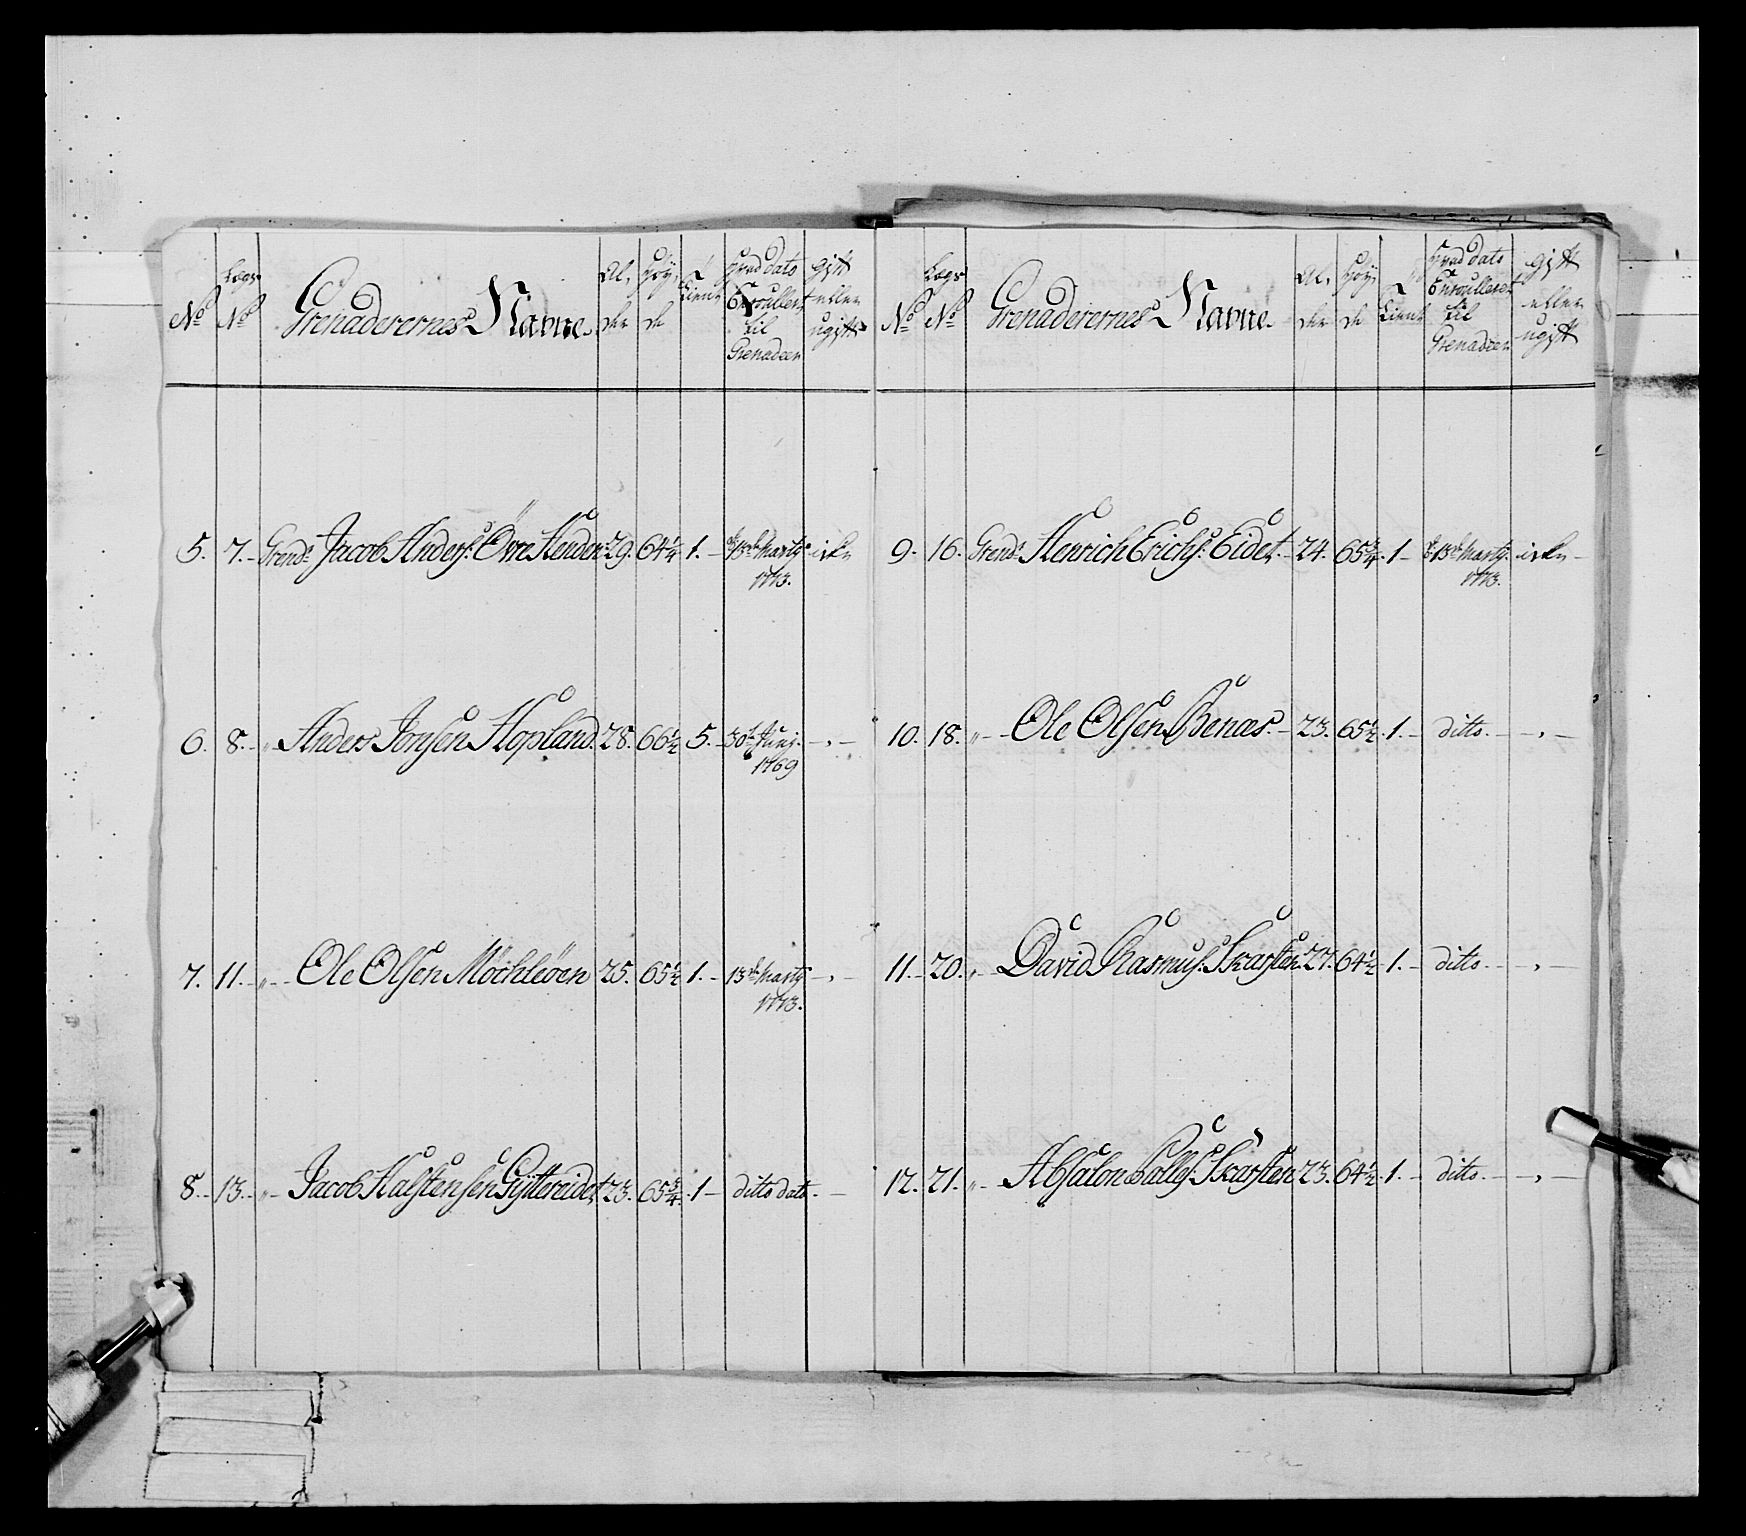 No Lægs No Grenaderernes Navne. Al, der Høy, de Tient Hvad dato Enroullert til Grenadeer gift eller ugift
5. 7. Grendr Jacob Anders: Övre Hender 29. 64 1/4 1. d 13de Martÿ 1773. icke
6. 8. " Anders Jonsen Hopland. 28. 66 1/2 5. 30te Junÿ 1769 "
7. 11. " Ole Olsen Möchleöen 25. 65 1/2 1. 13de Martÿ 1773. "
8. 13. " Jacob Halstensen Gÿttereidet 23. 65 3/4 1 ditto dato.
No Lægs No Grenaderernes Navne. Al, der Høy, de Tient Hvad dato Enroullert til Grenadeer gift eller ugift
9. 16. Grendr Henrich Erichs: Eidet. 24. 65 3/4 1 d 13de Martÿ 1773. icke
10. 18. " Ole Olsen Benæs. 23. 65 1/2 1. ditto. "
11. 20. " David Rasmus: Skarsten 27. 64 1/2 1. ditto "
12. 21. " Absalon Palles: Skarsten 23. 64 1/2 1. ditto. "